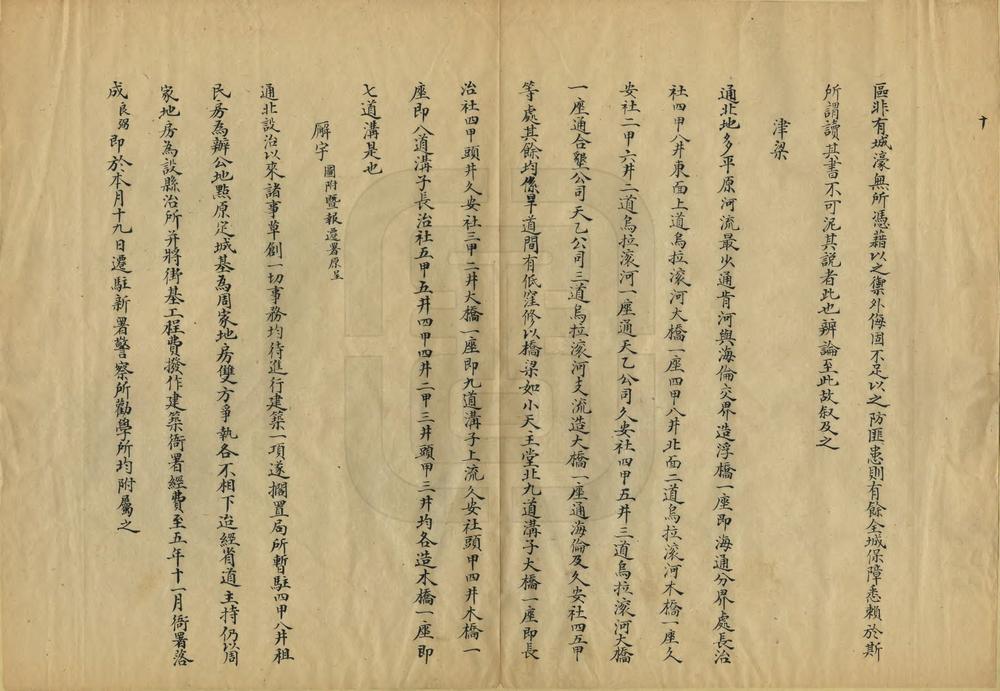 區非有城濠無所憑藉以之禦外侮固不足以之防匪患則有餘全城保障悉賴於斯
所謂讀其書不可泥其說者此也辨論至此故叙及之
津梁
通北地多平原河流最少通肯河與海倫交界造浮橋一座即海通分界處長治
社四甲八井東面上道烏拉滾河大橋一座四甲八井北面二道烏拉滾河木橋一座久
安社二甲六井二道烏拉滾河一座通天乙公司久安社四甲五井三道烏拉滾河大橋
一座通合墾公司天乙公司三道烏拉滾河支流造大橋一座通海倫及久安社四五甲
等處其餘均係旱道間有低窪修以橋梁如小天主堂北九道溝子大橋一座即長
治社四甲頭井久安社三甲二井大橋一座即九道溝子上流久安社頭甲四井木橋一
座即八道溝子長治社五甲五井四甲四井二甲三井頭甲三井均各造木橋一座即
七道溝是也
廨宇 圖附暨報遷署原呈
通北設治以來諸事草創一切事務均待進行建築一項遂擱置局所暫駐四甲八井租
民房為辦公地點原定城基為周家地房雙方爭執各不相下迨經省道主持仍以周
家地房為設縣治所并將街基工程費撥作建築衙署經費至五年十一月衙署落
成良弼即於本月十九日遷駐新署警察所勸學所均附屬之